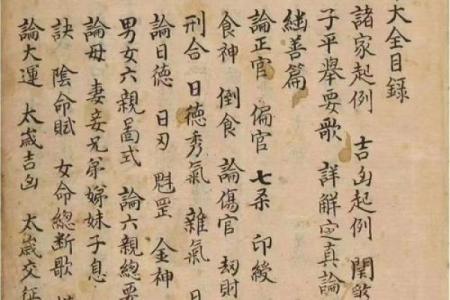 大全目錄
諸家起例 吉凶起例 閑
子平舉要歌 詳解定真論
繼善篇
論正官 偏官 七杀 印綬
食神 倒食 論傷官 刼財
刑合 日德秀氣 雜氣 日
論日德 日刃 魁罡 金神
男女六親圖式 論六親總要
論母 妻妾兄弟嫁妹子息
訣 陰命賦 女命總断歌
論大運 太歲吉凶 太歲交征